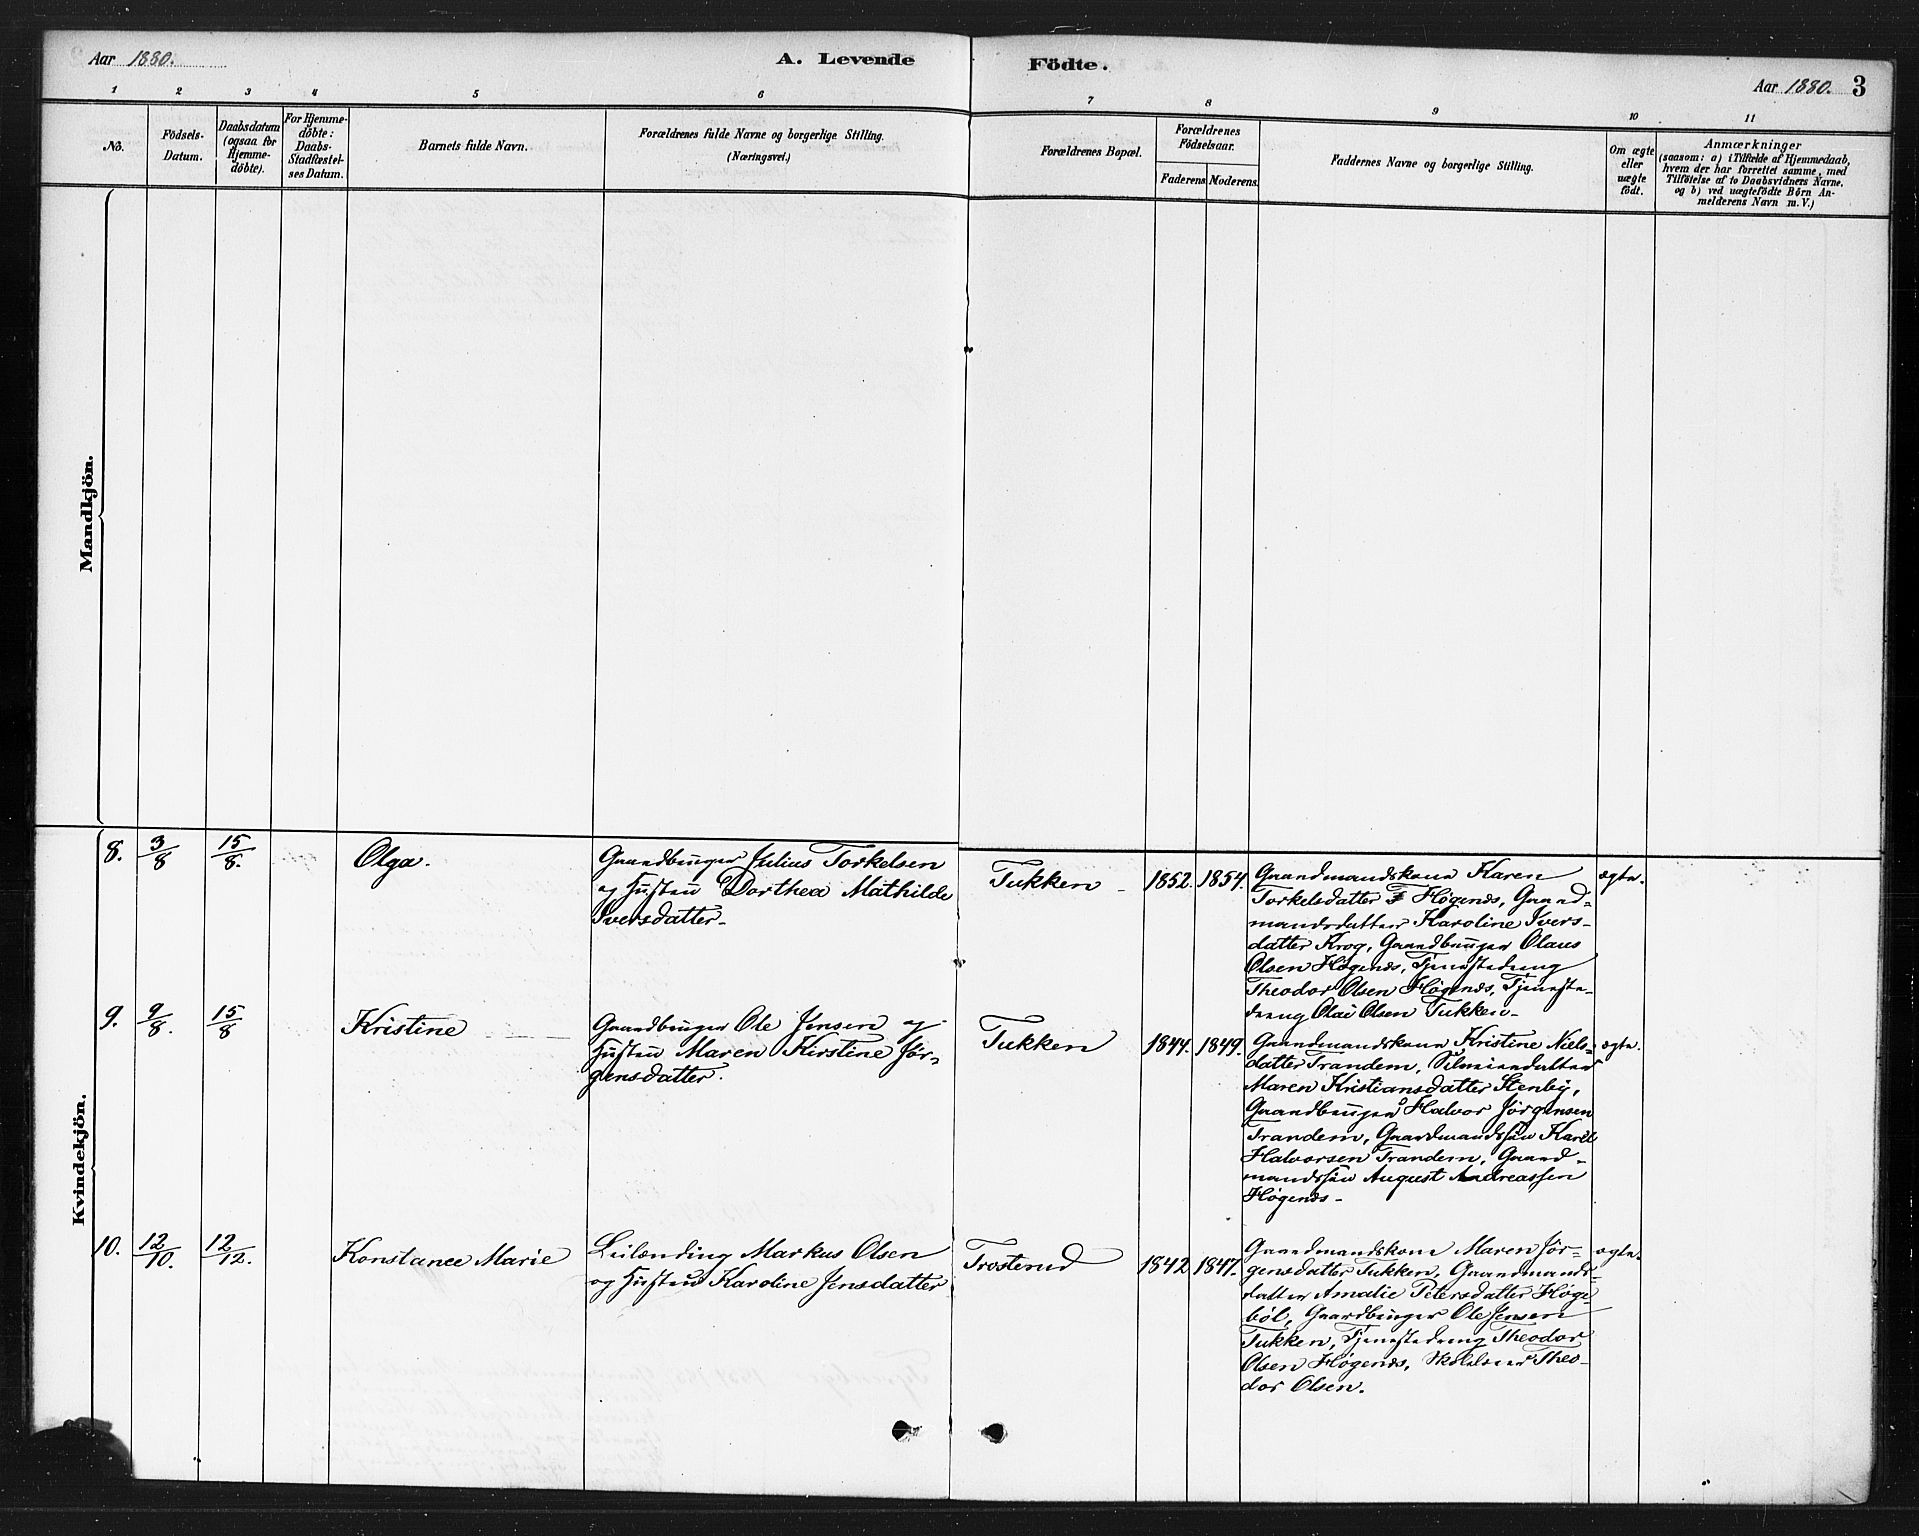 Aar 1880.
A. Levende
Födte.
Aar 1880. 3
1 2 3 4 5 6 7 8 9 10 11
No.
Födsels-
Datum.
Daabsdatum
(ogsaa for
Hjemme-
döbte).
For Hjemme-
döbte:
Daabs-
Stadfæstel-
ses Datum.
Barnets fulde Navn.
Forældrenes fulde Navne og borgerlige Stilling.
(Næringsvei.)
Forældrenes Bopæl.
Forældrenes
Födselsaar.
Faderens. Moderens.
Faddernes Navne og borgerlige Stilling.
Om ægte
eller
uægte
födt.
Anmærkninger
(saasom: a) i Tilfælde af Hjemmedaab,
hvem der har forrettet samme, med
Tilföielse af to Daabsvidners Navne,
og b) ved uægtefödte Börn An-
melderens Navn m. V.)
Mandkjön.
Kvindekjön.
8. 3/8 15/8.
Olga.
Gaardbruger Julius Torkelsen
og Hustru Dorthea Mathilde
Iversdatter.
Tukken
1852. 1854.
Gaardmandskone Karen
Torkelsdatter Høgends, Gaard-
mandsdatter Karoline Ivers-
datter Krog, Gaardbruger Olaus
Olsen Høgends, Tjenestedreng
Theodor Olsen Høgends, Tjeneste-
dreng Olai Olsen Tukken.
ægte.
9. 9/8. 15/8
Kristine
Gaardbruger Ole Jensen og
Hustru Maren Kirstine Jør-
gensdatter.
Tukken
1844. 1849.
Gaardmandskone Kristine Niels-
datter Trandem,
Maren Kristiansdatter Stenby,
Gaardbruger Halvor Jørgensen
Trandem, Gaardmandssøn Karl
Halvorsen Trandem, Gaard-
mandssøn August Andreassen
Høgends.
ægte.
10. 12/10. 12/12.
Konstance Marie
Leilending Markus Olsen
og Hustru Karoline Jensdatter
Trosterud
1842 1847.
Gaardmandskone Maren Jør-
gensdatter Tukken, Gaardmands-
datter Amalie Petersdatter Høge-
böl, Gaardbruger Ole Jensen
Tukken, Tjenestedreng Theodor
Olsen Høgends, Theo-
dor Olsen.
ægte.